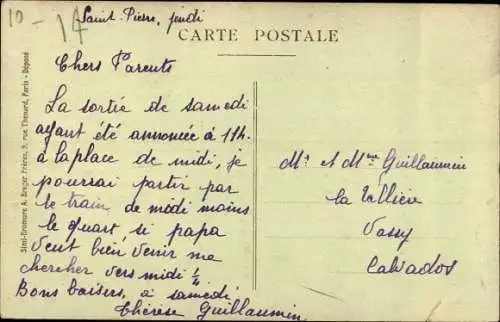 10 - 14
Saint-Pierre, jeudi
CARTE POSTALE
Chers Parents
La sortie de samedi
ayant été annoncée à 11h.
à la place de midi, je
pourrai partir par
le train de midi moins
le quart si papa
veut bien venir me
chercher vers midi 1/4
Bons baisers, à samedi,
Thérèse Guillaumin
Mr et Mme Guillaumin
la
Vassy
Calvados
Simi-Bromure A. Breger Frères, 9, rue Thénard, Paris - Déposé